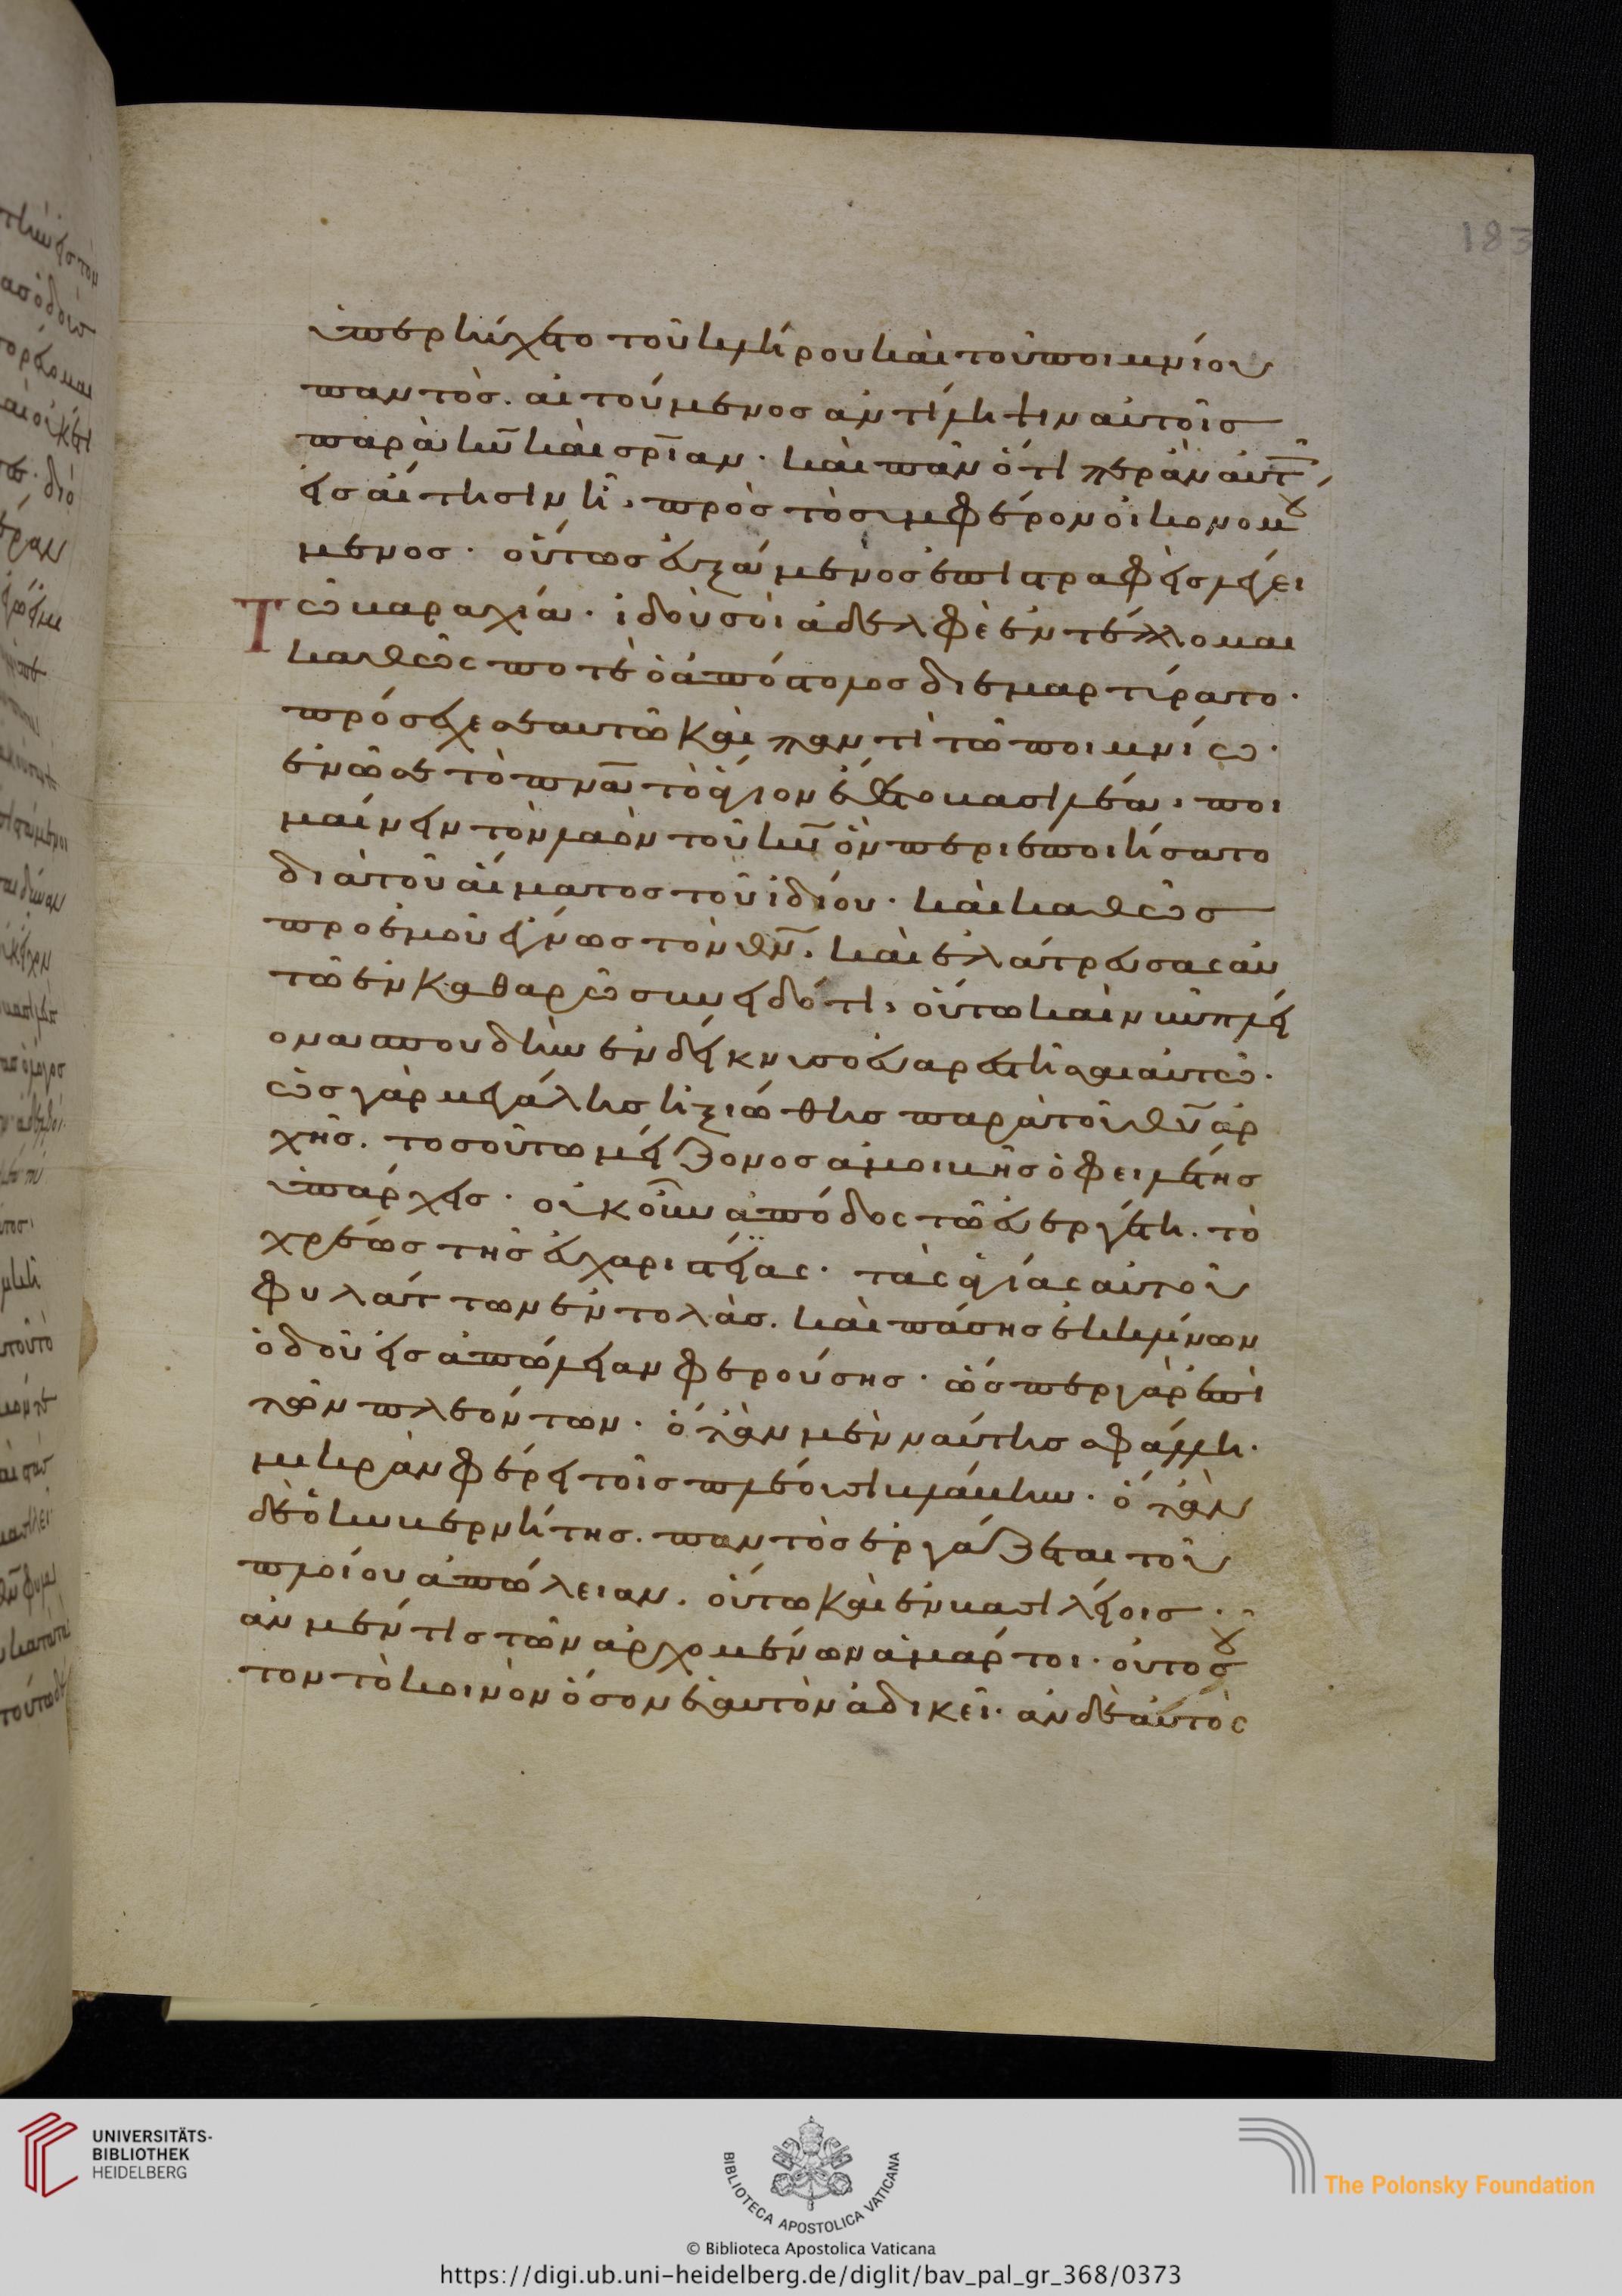 ὑπερηύχετο τοῦ κλήρου καὶ τοῦ ποιμνίου
παντὸς. αἰτούμενος ἀντίληψιν αὐτοῖς
παρὰ κυ̅ καὶ σρ̅ίαν· καὶ πᾶν ὅτιπερ ἂν αὐτοῖς
εἰς αἴτησιν ῆ, πρὸς τὸ συμφέρον οἰκονομού
μενος· οὕτως εὐξάμενος ἐπιστραφεὶς λέγει
Τῶ βαραχία· ἰδοὺ σοὶ ἀδελφὲ ἐντέλλομαι
καθώς ποτε ὁ ἀπόστολος διεμαρτύρατο·
πρόσεχε σεαυτῶ καὶ παντὶ τῶ ποιμνίω·
ἐν ῶ σε τὸ πνα̅ τὸ ἅγιον ἔθετο βασιλέα, ποι
μαίνειν τὸν λαὸν τοῦ κυ̅ ὃν περιεποιήσατο
διὰ τοῦ αἵματος τοῦ ἰδίου· καὶ καθὼς
πρὸ ἐμοῦ ἔγνως τὸν θν̅, καὶ ἐλάτρευσας αὐ
τῶ ἐν καθαρῶ συνειδότι, οὕτω καὶ νῦν πλεί
ονα σπουδὴν ἐνδείκνυσο εὐαρεστῆσαι αὐτῶ·
ὡς γὰρ μεγάλης ἠξιώθης παρὰ τοῦ θυ̅ ἀρ
χῆς. τοσούτω μείζονος ἀμοιβῆς ὀφειλέτης
ὑπάρχεις· οὐκοῦν ἀπόδος τῶ εὐεργέτη. τὸ
χρέως τῆς εὐχαριστείας· τὰς ἁγίας αὐτοῦ
φυλάττων ἐντολὰς. καὶ πάσης ἐκκλίνων
ὁδοῦ εἰς ἀπώλειαν φερούσης· ὥσπερ γὰρ ἐπὶ
τῶν πλεόντων· ὅταν μὲν ναύτης σφάλλη.
μικρὰν φέρει τοῖς πλέουσι βλάβην· ὅταν
δὲ ὁ κυβερνήτης. παντὸς ἐργάζεται τοῦ
πλοίου ἀπώλειαν. οὕτω καὶ ἐν βασιλείοις·
ἂν μέν τις τῶν ἀρχομένων ἁμάρτοι· οὐ τοσοῦ
τον τὸ κοινὸν ὅσον ἑαυτὸν ἀδικεῖ· ἂν δὲ αὐτὸς
183
UNIVERSITÄTS-
BIBLIOTHEK
HEIDELBERG
BIBLIOTECA APOSTOLICA VATICANA
The Polonsky Foundation
© Biblioteca Apostolica Vaticana
https://digi.ub.uni-heidelberg.de/diglit/bav_pal_gr_368/0373